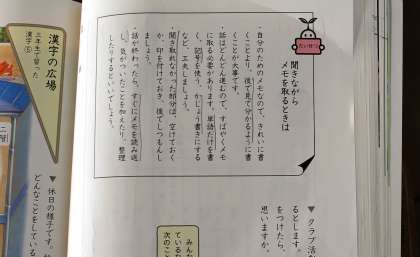 たいせつ
聞きながら
メモを取るときは
・自分のためのメモなので、きれいに書
くことより、後で見て分かるように書
くことが大事です。
・話はどんどん進むので、すばやくメモ
に取る必要があります。単語だけを書
く、記号を使う、かじょう書きにする
など、工夫しましょう。
・聞き取れなかった部分は、空けておく
か、印を付けておき、後でしつもんし
ましょう。
・話が終わったら、すぐにメモを読み返
し、気がついたことを加えたり、整理
したりするといいでしょう。
▼クラブ活
るとします。
をつけたら、
思いますか。
みんな
ているな
次のこと
漢字の広場
三年生で習った
漢字⑤
▼休日の様子です。
どんなことをしている
二階